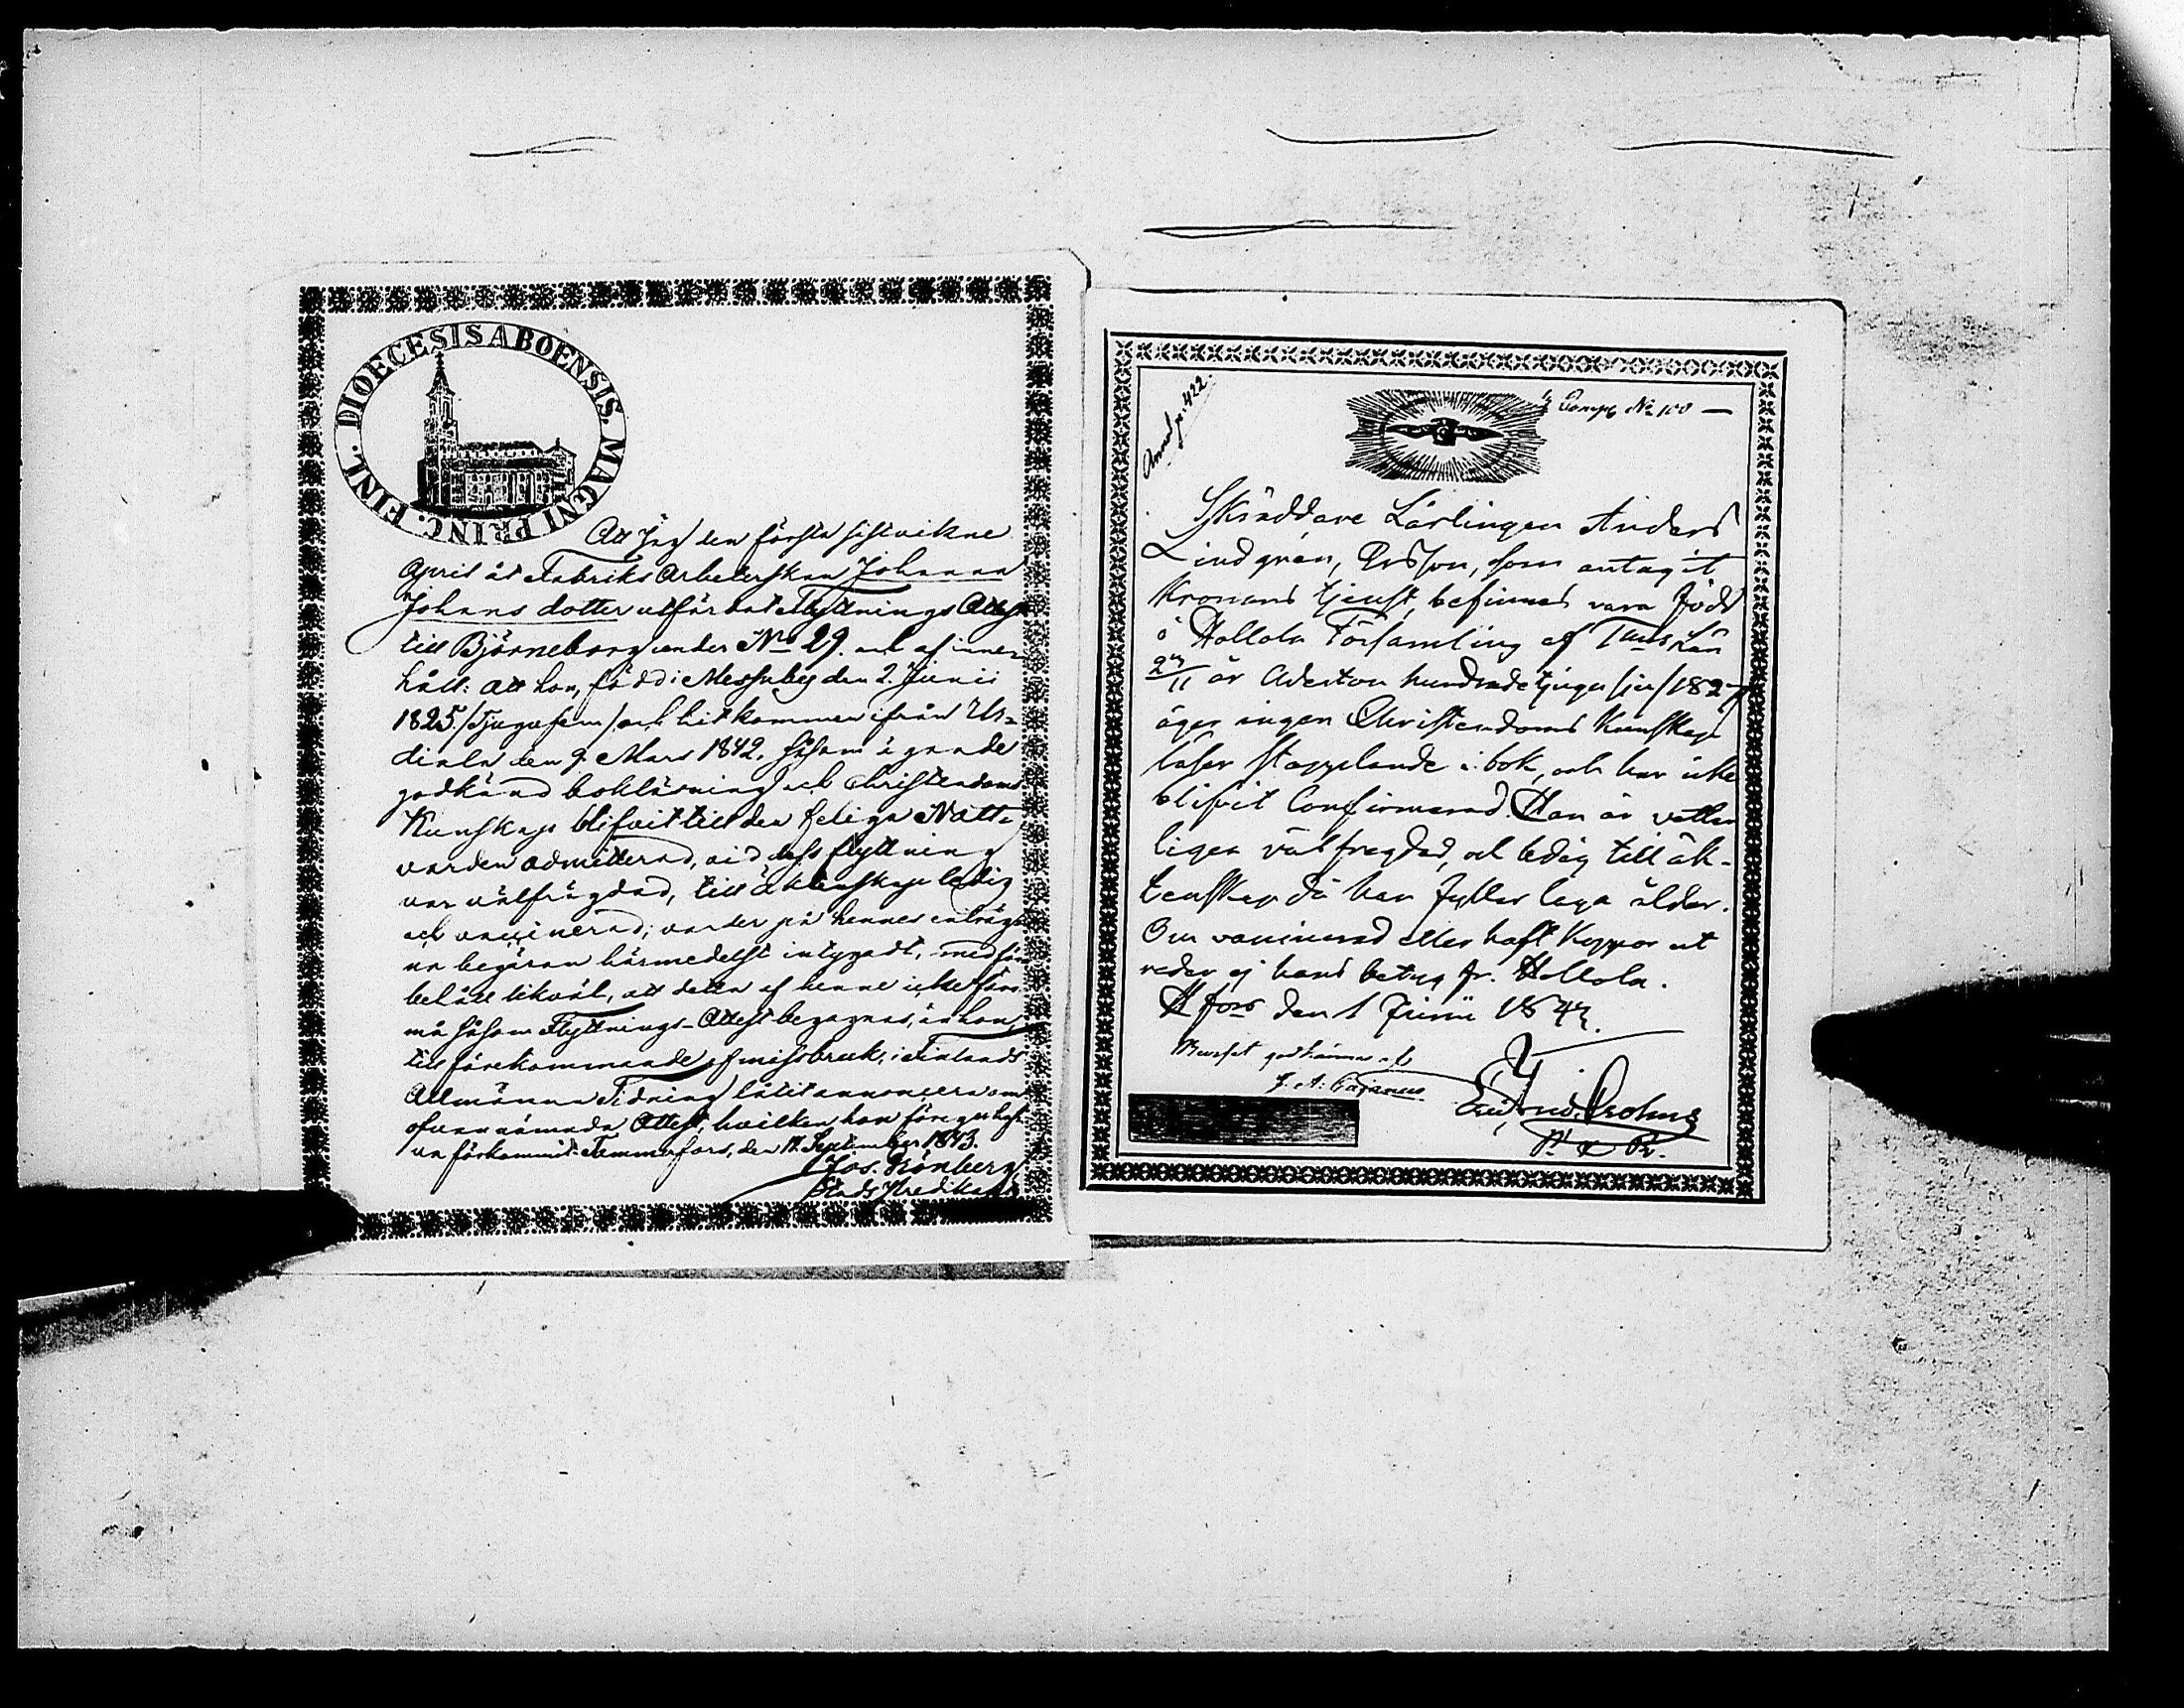 DIOECESIS ABOENSIS. MAGNI PRINC. FINL.
Att Jag den första sistvikne
April åt Fabriks Arbeterskan Johanna
Johans dotter utfärdat Flyttnings Attest
till Björneborg under No 29. och af inne-
håll: att hon, född i Messuby den 2. Junii
1825 /Tjugufem/ och hitkommen ifrån Ur-
diala den 9 Mars 1842, såsom ägande
godkänd bokläsning och Christendoms
Kunskap blifvit till den heliga Natt-
varden admitterad, vid dess flyttning
var välfrägdad, till äktenskap ledig
och vaccinerad; varder på hennes enträg-
na begäran härmedelst intygadt, med för-
behåll likväl, att detta af henne icke
må såsom Flyttnings-Attest begagnas, än hon,
till förekommande af missbruk, i Finlands
Allmänna Tidning låtit annoncera om
ofvannämnda Attest, hvilken hon föregifvit
va förkommit. Tammerfors, den 11 September 1843.
Jos. Grönberg
Stads Predikant
Anmf. p. 422.
Comp No 100 —
Skräddare Lärlingen Anders
Lindgrén, som antagit
Kronans tjenst, befinnes vara född
i Hollola Församling af Taws Län
år Aderton hundrade tjugu sju /1827
äger ingen Christendoms Kunskap
läser stapplande i bok, och har icke
blifvit Confirmerad. Han är vetter
ligen välfrägdad, och ledig till äk-
tenskap då han fyller laga ålder.
Om vaccinerad eller haft Koppor ut
reder ej hans betyg fr. Hollola.
H fors den 1 Junii 1843.
Beviset godkännes af
J. A. Cajanus